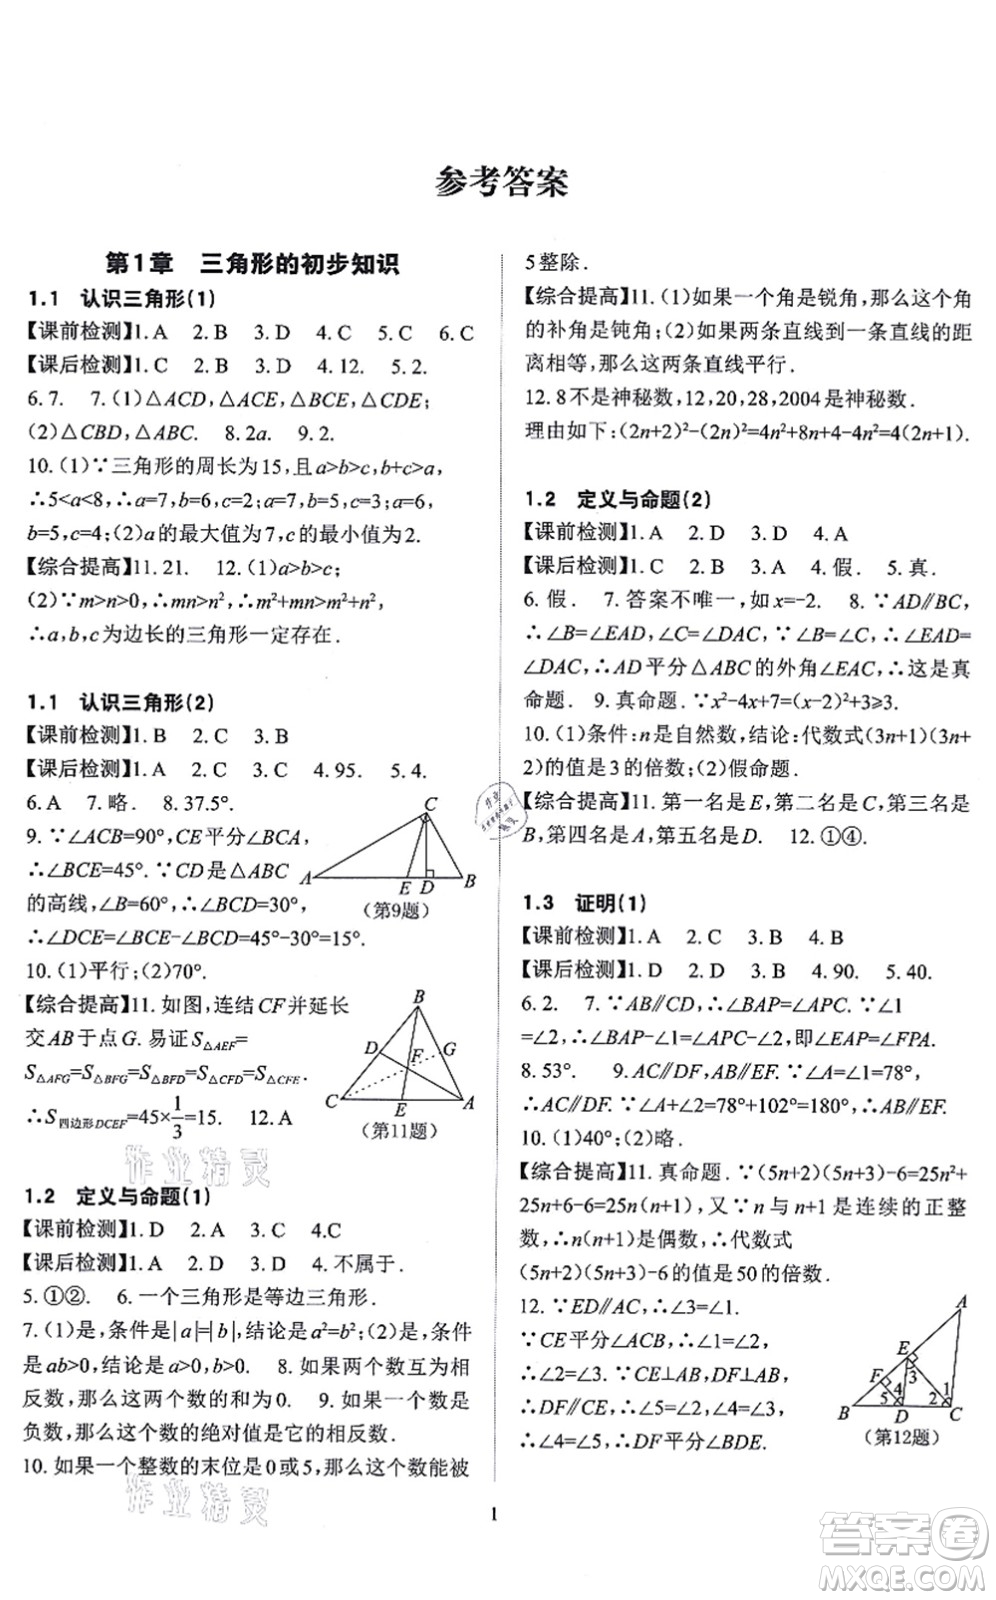 参考答案
第1章 三角形的初步知识
1.1 认识三角形(1)
【课前检测】1. A 2. B 3. D 4. C 5. C 6. C
【课后检测】1. C 2. B 3. D 4. 12. 5. 2.
6. 7. 7. (1)△ACD,△ACE,△BCE,△CDE;
(2)△CBD,△ABC. 8. 2a. 9. 2.
10. (1)∵三角形的周长为15,且a>b>c,b+c>a,
∴5<a<8,∴a=7,b=6,c=2;a=7,b=5,c=3;a=6,
b=5,c=4;(2)a的最大值为7,c的最小值为2.
【综合提高】11. 21. 12. (1)a>b>c;
(2)∵m>n>0,∴mn>n²,∴m²+mn>m²+n²,
∴a,b,c为边长的三角形一定存在.
1.1 认识三角形(2)
【课前检测】1. B 2. C 3. B
【课后检测】1. B 2. C 3. C 4. 95. 5. 4.
6. A 7. 略. 8. 37.5°.
9. ∵∠ACB=90°,CE平分∠BCA,
∴∠BCE=45°. ∵CD是△ABC
的高线,∠B=60°,∴∠BCD=30°,
∴∠DCE=∠BCE-∠BCD=45°-30°=15°.
C
A E D B
(第9题)
10. (1)平行;(2)70°.
【综合提高】11. 如图,连结CF并延长
交AB于点G. 易证S△AEF=
S△AFG=S△BFG=S△BFD=S△CFD=S△CFE.
∴S四边形DCEF=45×1/3=15. 12. A
B
D G
F
C E A
(第11题)
1.2 定义与命题(1)
【课前检测】1. D 2. A 3. C 4. C
【课后检测】1. A 2. D 3. D 4. 不属于.
5. ①②. 6. 一个三角形是等边三角形.
7. (1)是,条件是|a|=|b|,结论是a²=b²;(2)是,条件
是ab>0,结论是a>0,b>0. 8. 如果两个数互为相
反数,那么这两个数的和为0. 9. 如果一个数是
负数,那么这个数的绝对值是它的相反数.
10. 如果一个整数的末位是0或5,那么这个数能被
5整除.
【综合提高】11. (1)如果一个角是锐角,那么这个角
的补角是钝角;(2)如果两条直线到一条直线的距
离相等,那么这两条直线平行.
12. 8不是神秘数,12,20,28,2004是神秘数.
理由如下:(2n+2)²-(2n)²=4n²+8n+4-4n²=4(2n+1).
1.2 定义与命题(2)
【课前检测】1. A 2. D 3. D 4. A
【课后检测】1. D 2. D 3. A 4. 假. 5. 真.
6. 假. 7. 答案不唯一,如x=-2. 8. ∵AD∥BC,
∴∠B=∠EAD,∠C=∠DAC,∵∠B=∠C,∴∠EAD=
∠DAC,∴AD平分△ABC的外角∠EAC,∴这是真
命题. 9. 真命题. ∵x²-4x+7=(x-2)²+3≥3.
10. (1)条件:n是自然数,结论:代数式(3n+1)(3n+
2)+1的值是3的倍数;(2)假命题.
【综合提高】11. 第一名是E,第二名是C,第三名是
B,第四名是A,第五名是D. 12. ①④.
1.3 证明(1)
【课前检测】1. A 2. C 3. D 4. B
【课后检测】1. D 2. D 3. A 4. C 5. 40.
6. 2. 7. ∵AB∥CD,∴∠BAP=∠APC. ∵∠1
=∠2,∴∠BAP-∠1=∠APC-∠2,即∠EAP=∠FPA.
8. 53°. 9. AC∥DF,AB∥EF. ∵∠2=∠1=78°,
∴AC∥DF. ∵∠2+∠3=78°+102°=180°,∴AB∥EF.
10. (1)40°;(2)略.
【综合提高】11. 真命题. ∵(5n+2)(5n+3)-6=25n²+
25n+6-6=25n(n+1),又∵n与n+1是连续的正整
数,∴n(n+1)是偶数,∴代数式
(5n+2)(5n+3)-6的值是50的倍数.
12. ∵ED∥AC,∴∠3=∠1.
∵CE平分∠ACB,∴∠1=∠2,
∴∠2=∠3. ∵CE⊥AB,DF⊥AB,
∴DF∥CE,∴∠3=∠4,∠2=∠5,
∴∠4=∠5,∴DF平分∠BDE.
A
E
F 3
5 4 2 1
B D C
(第12题)
作业精灵
作业精灵
1
答案卷
MXQE.COM